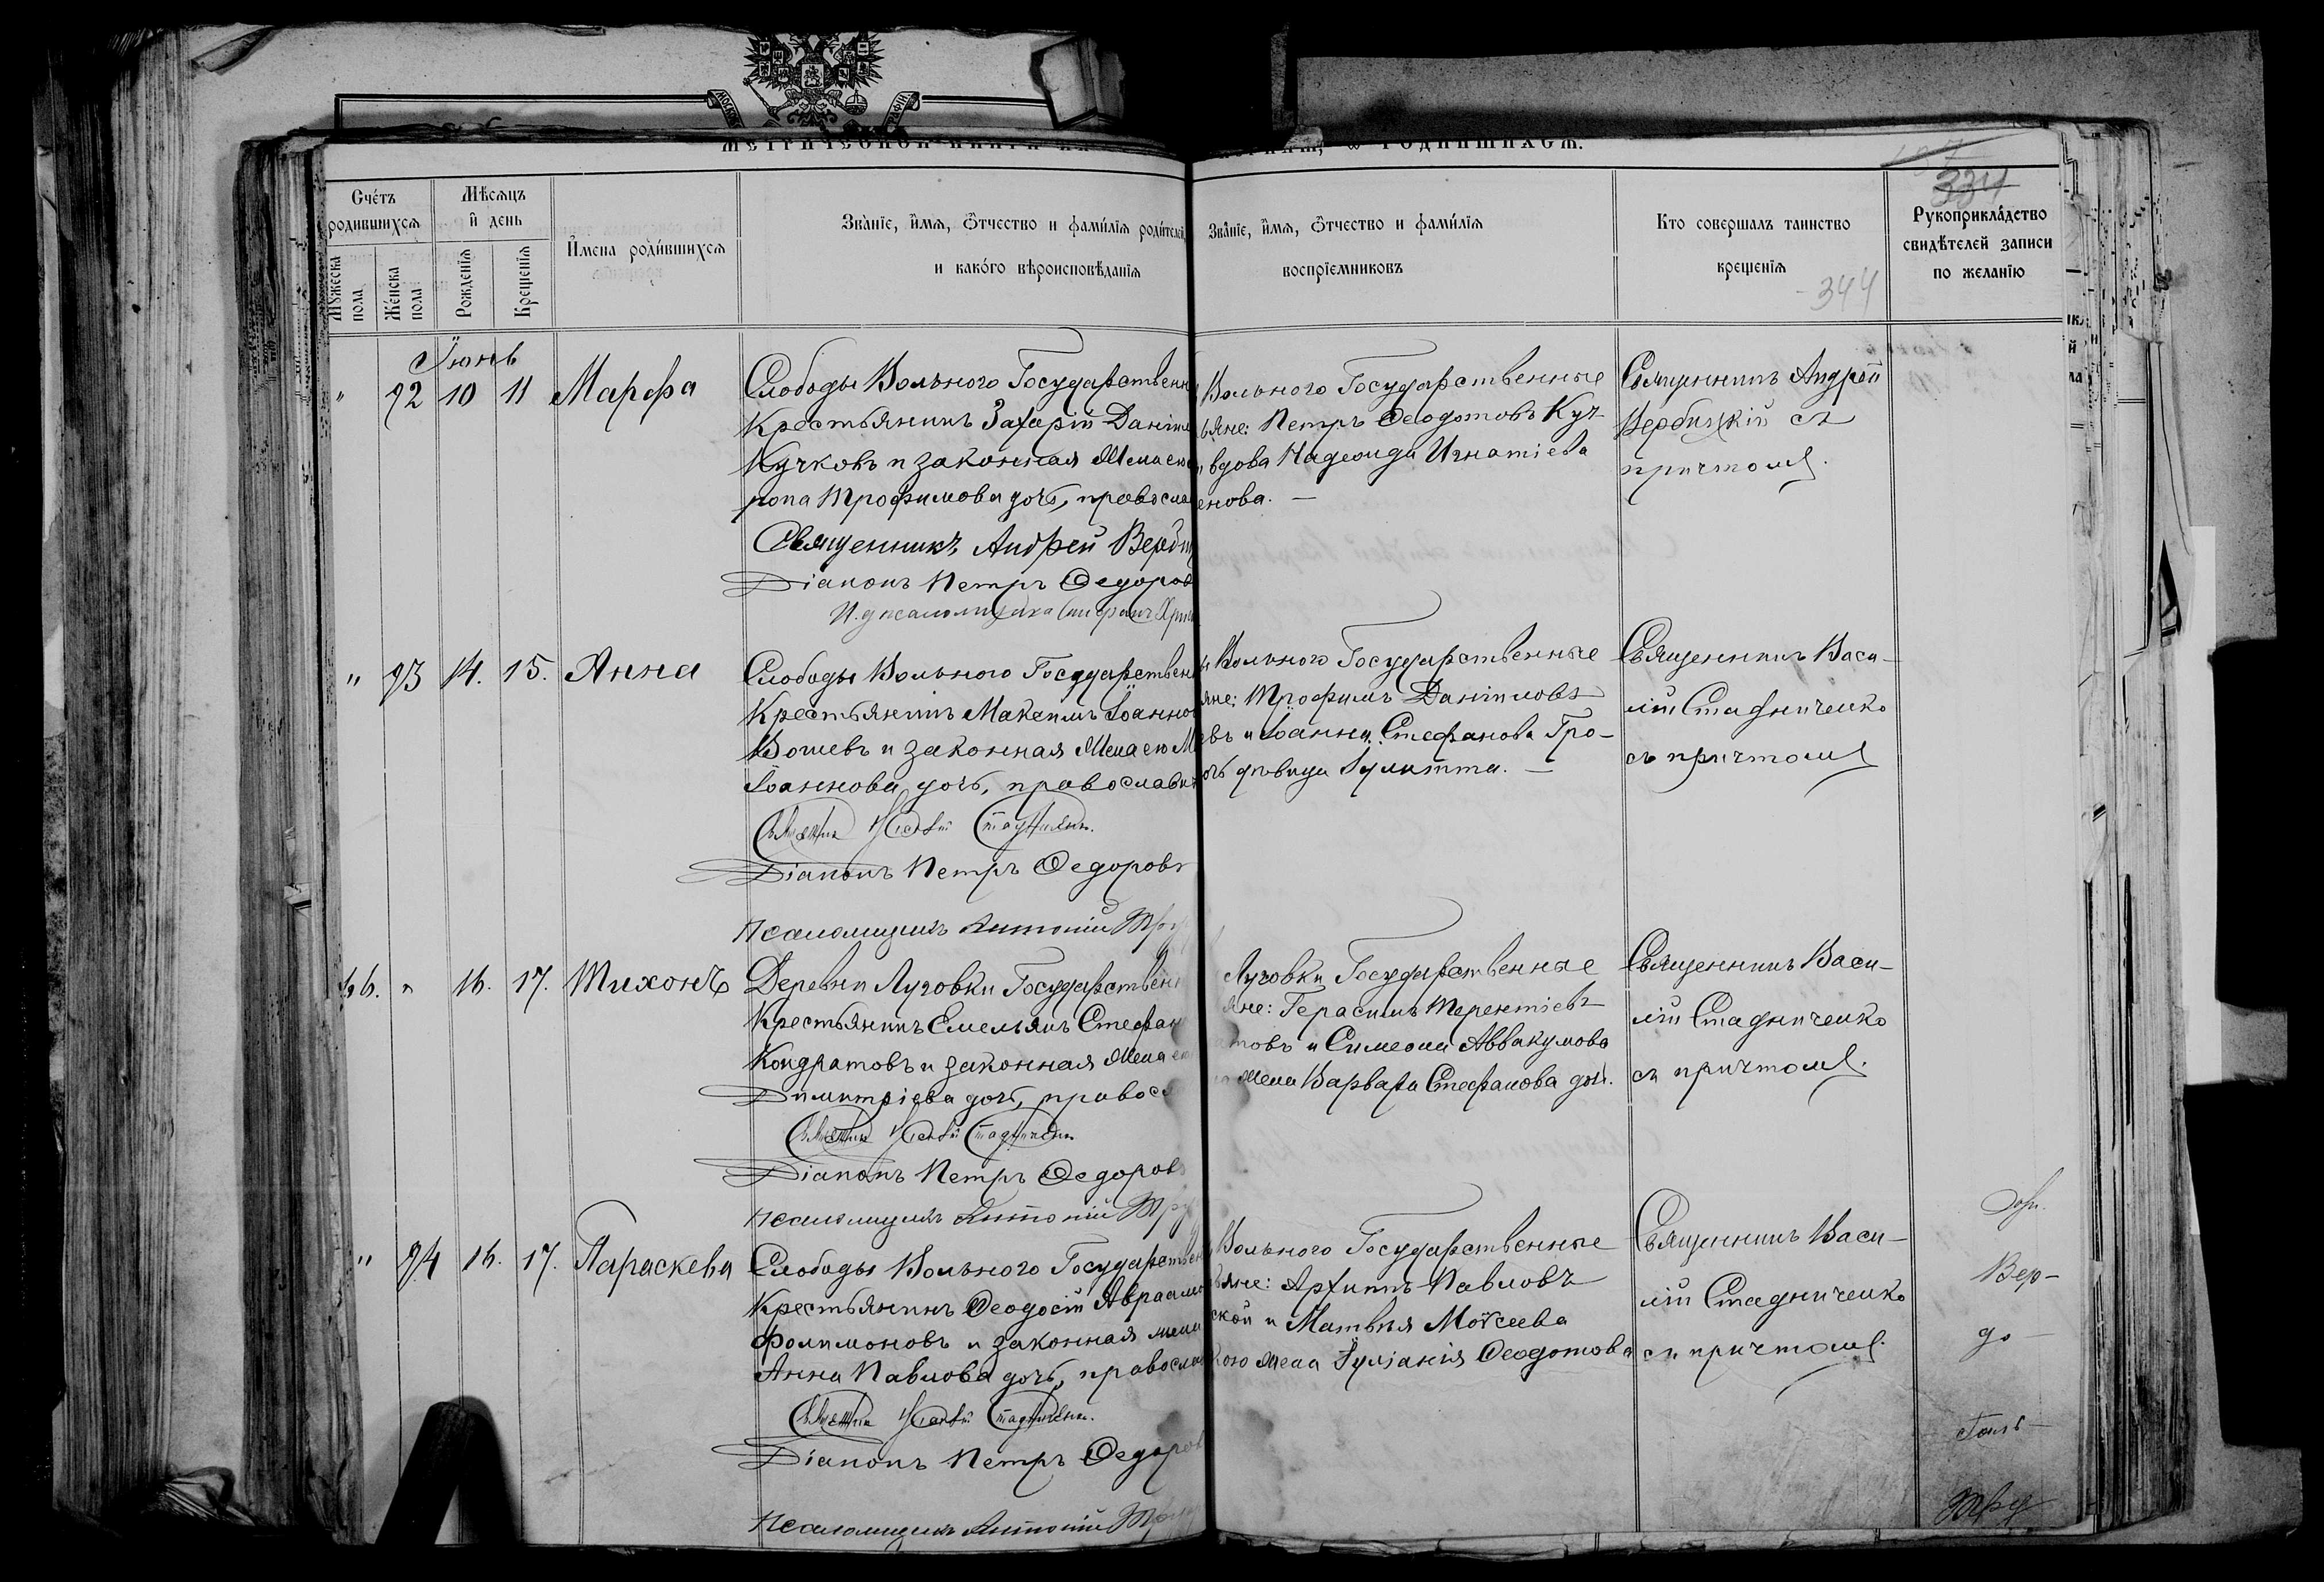 родившихся.
334
344
Счетъ родившихся
Мужеска пола
Женска пола
Мѣсяцъ и день
Рожденія
Крещенія
Имена родившихся
Званіе, имя, отчество и фамилія родителей,
и какого вѣроисповѣданія
Званіе, имя, отчество и фамилія
воспріемниковъ
Кто совершалъ таинство
крещенія
Рукоприкладство
свидѣтелей записи
по желанію
Іюнь
" 92 10 11 Марѳа
Слободы Вольного Государственн
Крестьянинъ Захарій Даніи
Кучковъ и законная жена его
Трофимова дочь, правосла
Священникъ Андрей Верби
Діаконъ Петръ Ѳедоров
И. д. псаломщика
Вольного Государственные
ьяне: Петръ Ѳеодотовъ Куч-
вдова Надежда Игнатіева
енова. —
Священникъ Андрей
Вербицкій съ
причтомъ.
" 93 14. 15. Анна
Слободы Вольного Государствен
Крестьянинъ Максимъ Іоанно
и законная жена его М
Іоаннова дочь, православн
Діаконъ Петръ Ѳедоровъ
Псаломщикъ Антоній Тру
Вольного Государственные
яне: Трофимъ Даніиловъ
въ и Іоанна Стефанова Гро-
очь дѣвица Іулитта. —
Священникъ Васи-
лій Стадниченко
съ причтомъ
" 16. 17. Тихонъ
Деревни Луговки Государствен
Крестьянинъ Емельянъ Стефан
Кондратовъ и законная жена его
Димитріева дочь, правосл
Діаконъ Петръ Ѳедоровъ
Псаломщикъ Антоній Тру
Луговки Государственные
яне: Герасимъ Терентіевъ
атовъ и Симеона Аввакумова
жена Варвара Стефанова дочь.
Священникъ Васи-
лій Стадниченко
съ причтомъ.
" 94 16. 17. Параскева
Слободы Вольного Государствен
Крестьянинъ Ѳеодосій Авраамо
Филимоновъ и законная жена
Анна Павлова дочь, правосла
Діаконъ Петръ Ѳедоров
Псаломщикъ Антоній Тру
Вольного Государственные
ьяне: Архипъ Павловъ
ской и Матвѣя Моѵсеева
кого жена Іуліанія Ѳеодотова
Священникъ Васи-
лій Стадниченко
съ причтомъ.
Вер-
до-
Тру